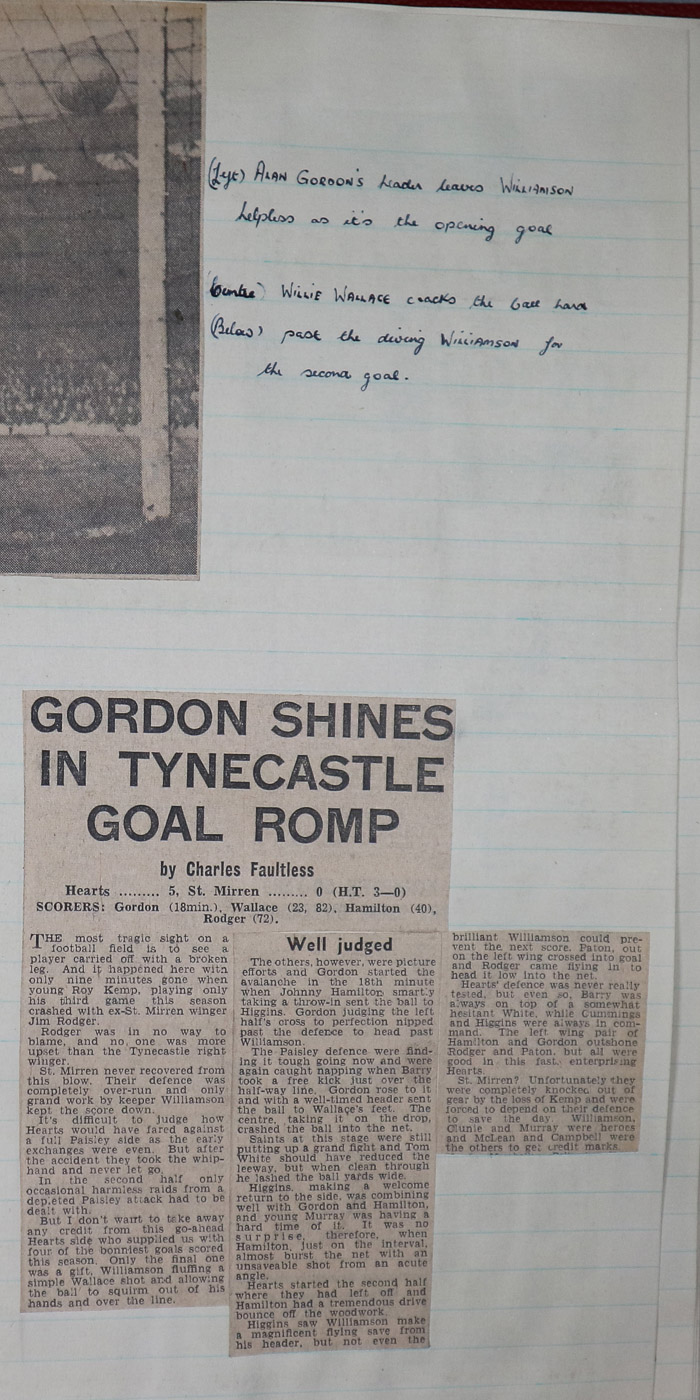 (Left) ALAN GORDON'S header leaves WILLIAMSON
helpless as it's the opening goal
(Centre) WILLIE WALLACE cracks the ball hard
(Below) past the diving WILLIAMSON for
the second goal.
GORDON SHINES
IN TYNECASTLE
GOAL ROMP
by Charles Faultless
Hearts ......... 5, St. Mirren ......... 0 (H.T. 3—0)
SCORERS: Gordon (18min.), Wallace (23, 82), Hamilton (40),
Rodger (72).
THE most tragic sight on a
football field is to see a
player carried off with a broken
leg. And it happened here with
only nine minutes gone when
young Roy Kemp, playing only
his third game this season
crashed with ex-St. Mirren winger
Jim Rodger.
Rodger was in no way to
blame, and no one was more
upset than the Tynecastle right
winger.
St. Mirren never recovered from
this blow. Their defence was
completely over-run and only
grand work by keeper Williamson
kept the score down.
It's difficult to judge how
Hearts would have fared against
a full Paisley side as the early
exchanges were even. But after
the accident they took the whip-
hand and never let go.
In the second half only
occasional harmless raids from a
depleted Paisley attack had to be
dealt with.
But I don't want to take away
any credit from this go-ahead
Hearts side who supplied us with
four of the bonniest goals scored
this season. Only the final one
was a gift, Williamson fluffing a
simple Wallace shot and allowing
the ball to squirm out of his
hands and over the line.
Well judged
The others, however, were picture
efforts and Gordon started the
avalanche in the 18th minute
when Johnny Hamilton smartly
taking a throw-in sent the ball to
Higgins. Gordon judging the left
half's cross to perfection nipped
past the defence to head past
Williamson.
The Paisley defence were find-
ing it tough going now and were
again caught napping when Barry
took a free kick just over the
half-way line. Gordon rose to it
and with a well-timed header sent
the ball to Wallace's feet. The
centre, taking it on the drop,
crashed the ball into the net.
Saints at this stage were still
putting up a grand fight and Tom
White should have reduced the
leeway, but when clean through
he lashed the ball yards wide.
Higgins, making a welcome
return to the side, was combining
well with Gordon and Hamilton,
and young Murray was having a
hard time of it. It was no
surprise, therefore, when
Hamilton, just on the interval,
almost burst the net with an
unsaveable shot from an acute
angle.
Hearts started the second half
where they had left off and
Hamilton had a tremendous drive
bounce off the woodwork.
Higgins saw Williamson make
a magnificent flying save from
his header, but not even the
brilliant Williamson could pre-
vent the next score. Paton, out
on the left wing crossed into goal
and Rodger came flying in to
head it low into the net.
Hearts' defence was never really
tested, but even so, Barry was
always on top of a somewhat
hesitant White, while Cummings
and Higgins were always in com-
mand. The left wing pair of
Hamilton and Gordon outshone
Rodger and Paton, but all were
good in this fast, enterprising
Hearts.
St. Mirren? Unfortunately they
were completely knocked out of
gear by the loss of Kemp and were
forced to depend on their defence
to save the day. Williamson,
Clunie and Murray were heroes
and McLean and Campbell were
the others to get credit marks.